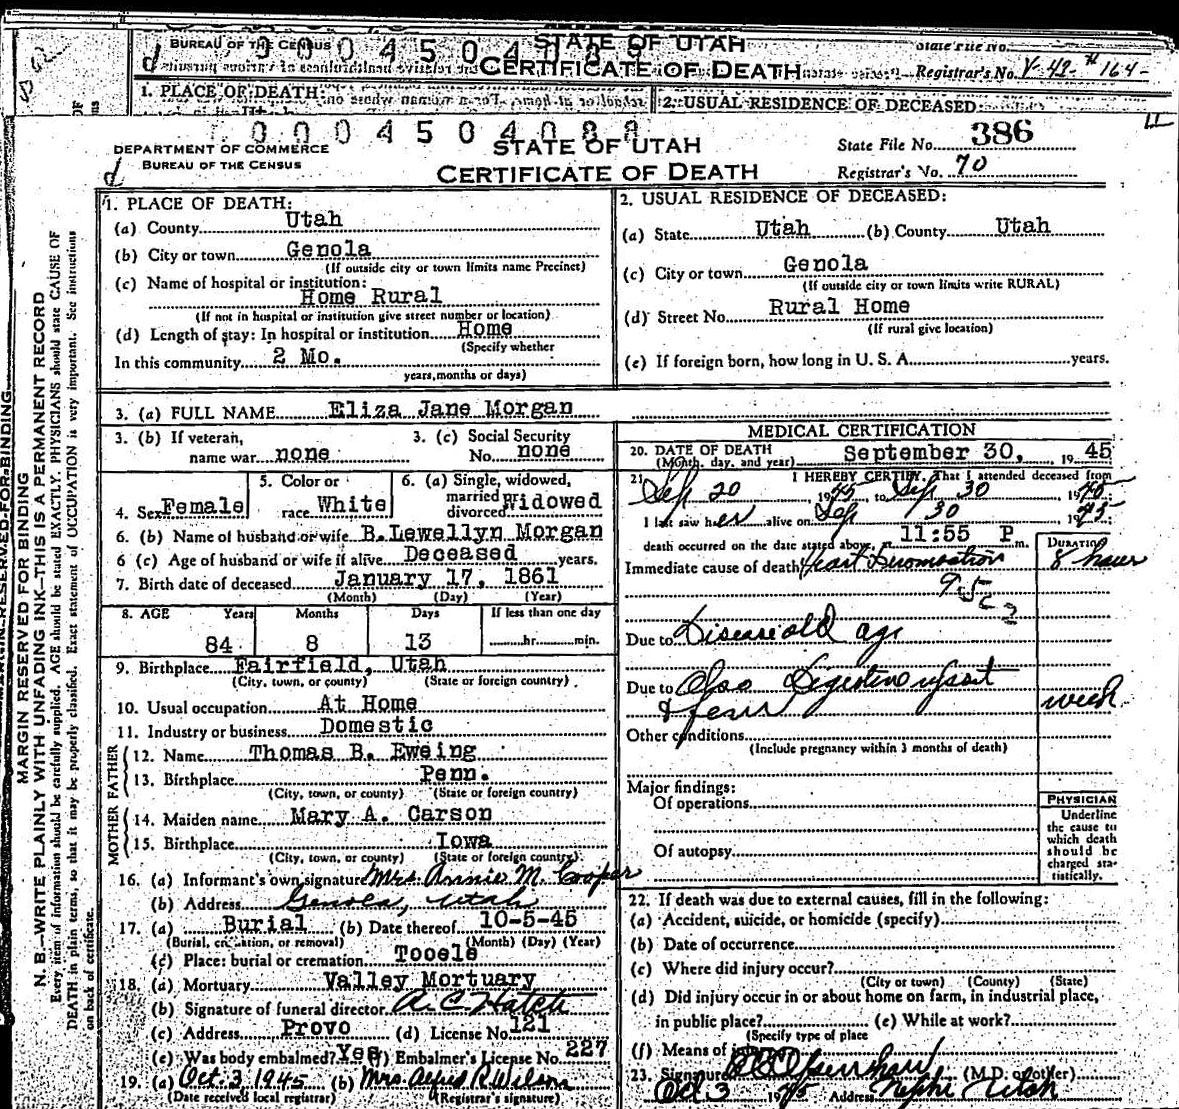 BUREAU OF THE CENSUS
0004504089
STATE OF UTAH
CERTIFICATE OF DEATH
State File No.
Registrar's No. V-42-#164-
1. PLACE OF DEATH:
2. USUAL RESIDENCE OF DECEASED:
0004504088
DEPARTMENT OF COMMERCE
BUREAU OF THE CENSUS
d
STATE OF UTAH
CERTIFICATE OF DEATH
State File No. 386
Registrar's No. 70
MARGIN RESERVED FOR BINDING
N. B.—WRITE PLAINLY WITH UNFADING INK—THIS IS A PERMANENT RECORD
Every item of information should be carefully supplied. AGE should be stated EXACTLY. PHYSICIANS should state CAUSE OF
DEATH in plain terms, so that it may be properly classified. Exact statement of OCCUPATION is very important. See instructions
on back of certificate.
1. PLACE OF DEATH:
(a) County Utah
(b) City or town Genola
(If outside city or town limits name Precinct)
(c) Name of hospital or institution:
Home Rural
(If not in hospital or institution give street number or location)
(d) Length of stay: In hospital or institution Home
(Specify whether
In this community 2 Mo.
years, months or days)
2. USUAL RESIDENCE OF DECEASED:
(a) State Utah (b) County Utah
(c) City or town Genola
(If outside city or town limits write RURAL)
(d) Street No. Rural Home
(If rural give location)
(e) If foreign born, how long in U. S. A. years.
3. (a) FULL NAME Eliza Jane Morgan
3. (b) If veteran, name war none
3. (c) Social Security No. none
4. Sex Female
5. Color or race White
6. (a) Single, widowed, married divorced Widowed
6. (b) Name of husband or wife B. Lewellyn Morgan
6 (c) Age of husband or wife if alive Deceased years.
7. Birth date of deceased January 17, 1861
(Month) (Day) (Year)
8. AGE Years Months Days If less than one day
84 8 13 hr. min.
9. Birthplace Fairfield, Utah
(City, town, or county) (State or foreign country)
10. Usual occupation At Home
11. Industry or business Domestic
FATHER
12. Name Thomas B. Eweing
13. Birthplace Penn.
(City, town, or county) (State or foreign country)
MOTHER
14. Maiden name Mary A. Carson
15. Birthplace Iowa
(City, town, or county) (State or foreign country)
16. (a) Informant's own signature Mrs. Annie M. Cooper
(b) Address Genola, Utah
17. (a) Burial (b) Date thereof 10-5-45
(Burial, cremation, or removal) (Month) (Day) (Year)
(c) Place: burial or cremation Tooele
18. (a) Mortuary Valley Mortuary
(b) Signature of funeral director A. C. Hatch
(c) Address Provo (d) License No. 121
(e) Was body embalmed? Yes (f) Embalmer's License No. 227
19. (a) Oct. 3, 1945 (b) Mrs. Alfred R. Wilson
(Date received local registrar) (Registrar's signature)
MEDICAL CERTIFICATION
20. DATE OF DEATH September 30, 1945
(Month, day, and year)
21. I HEREBY CERTIFY, That I attended deceased from
Sep 20 1945 to Sep 30 1945
I last saw her alive on Sep 30 1945;
death occurred on the date stated above, at 11:55 P m.
DURATION
Immediate cause of death Heart 8 hour
Due to Disease old age
Due to Also Digestive upset week
Other conditions
(Include pregnancy within 3 months of death)
Major findings:
Of operations
Of autopsy
PHYSICIAN
Underline
the cause to
which death
should be
charged sta-
tistically.
22. If death was due to external causes, fill in the following:
(a) Accident, suicide, or homicide (specify)
(b) Date of occurrence
(c) Where did injury occur?
(City or town) (County) (State)
(d) Did injury occur in or about home on farm, in industrial place,
in public place? (e) While at work?
(Specify type of place
(f) Means of injury
23. Signature (M.D. or other)
Oct 3 1945 Address Nephi Utah